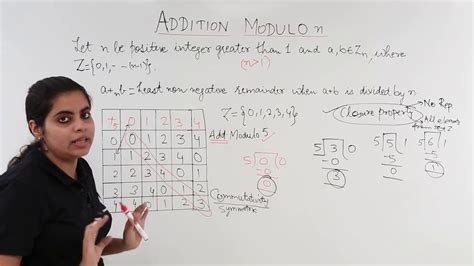 ADDITION MODULO n
Let n be positive integer greater than 1 and a, b∈Zn, where
Z={0,1,---(n-1)}. (n>1)
a+nb = Least non negative remainder when a+b is divided by n
Z={0,1,2,3,4}
Closure property
No Rep
All elements
from set Z
Add Modulo 5.
+5 0 1 2 3 4
0 0 1 2 3 4
1 2 3 4 0
2 2 3 4 0 1
3 3 4 0 1 2
4 4 1 2 3
5 0 0
-0
0
5 3 0
-0
3
5 5 1
-5
0
5 6 1
-5
1
Commutativity
Symmetric